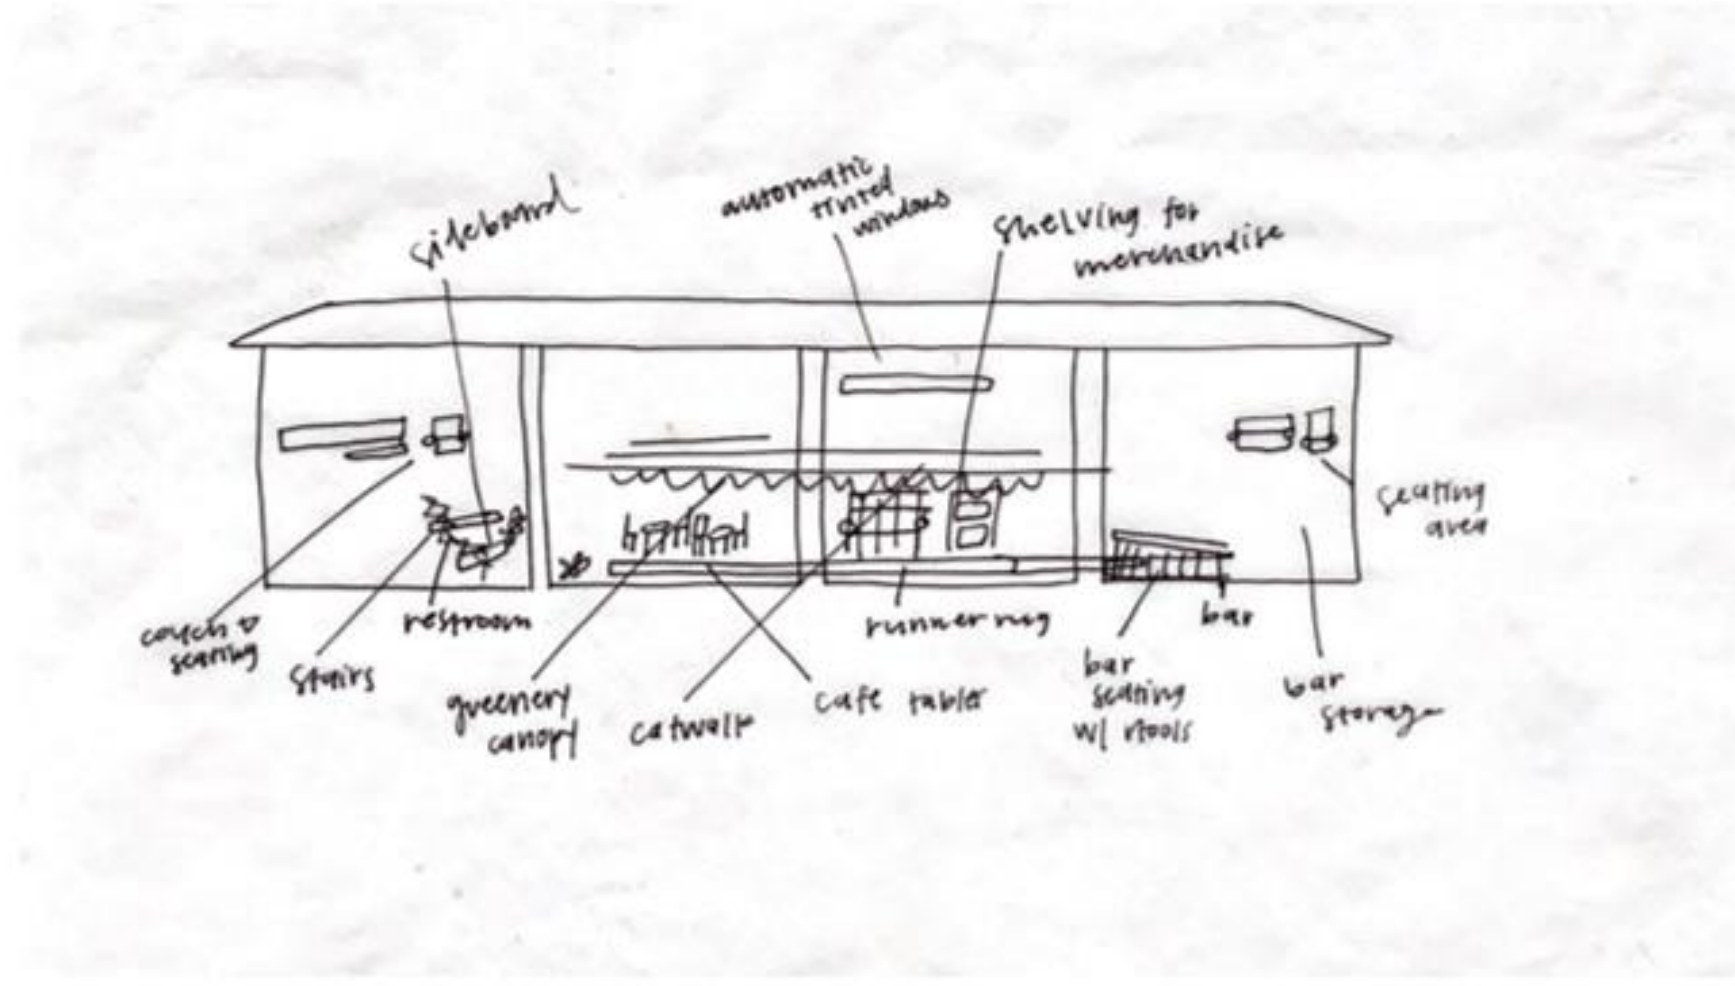 sideboard
automatic
tinted
windows
shelving for
merchandise
seating
area
couch &
seating
stairs
restroom
greenery
canopy
catwalk
cafe tables
runner rug
bar
seating
w/ stools
bar
bar
storage